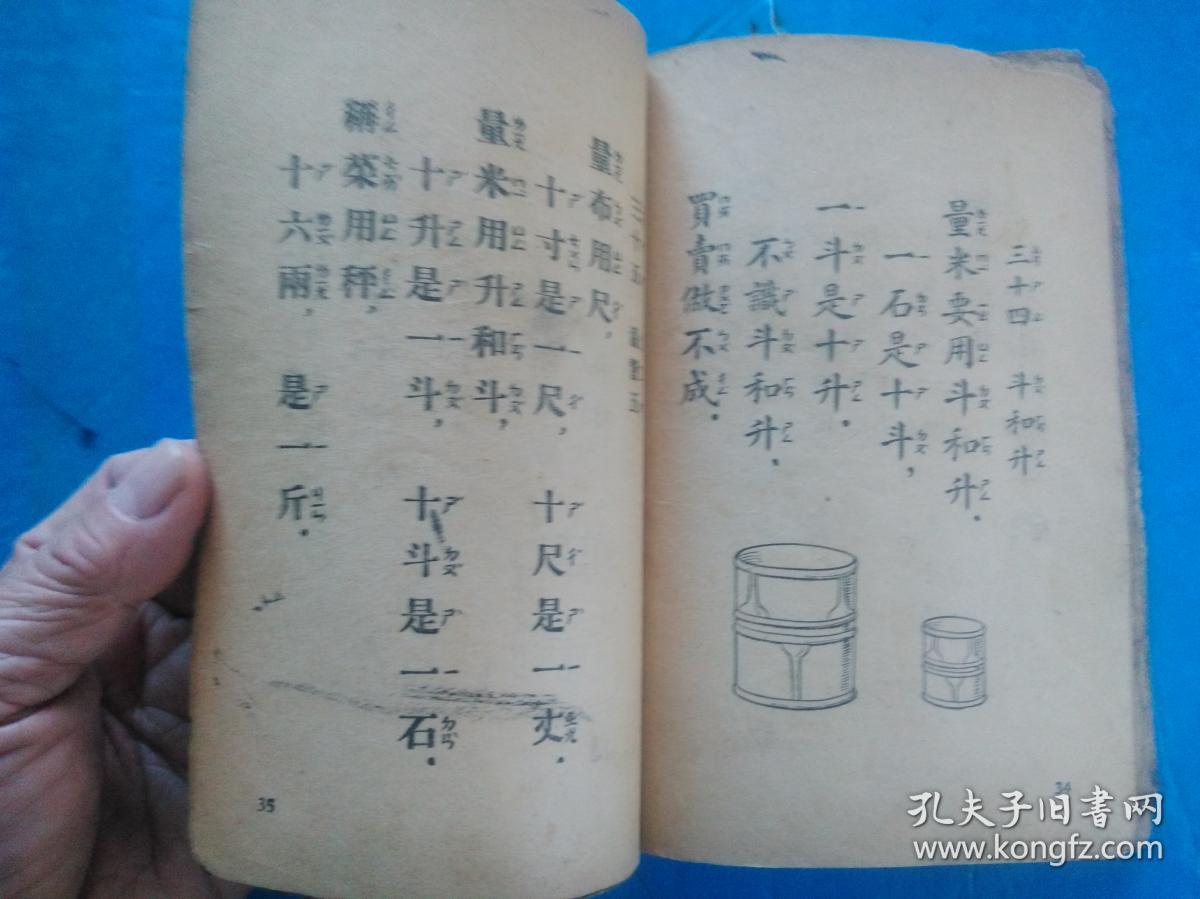 三十四 斗和升
量米要用斗和升.
一石是十斗,
一斗是十升.
不識斗和升,
買賣做不成.
34
三十五
量布用尺,
十寸是一尺, 十尺是一丈.
量米用升和斗,
十升是一斗, 十斗是一石.
稱菜用秤,
十六兩, 是一斤.
35
孔夫子旧书网
www.kongfz.com